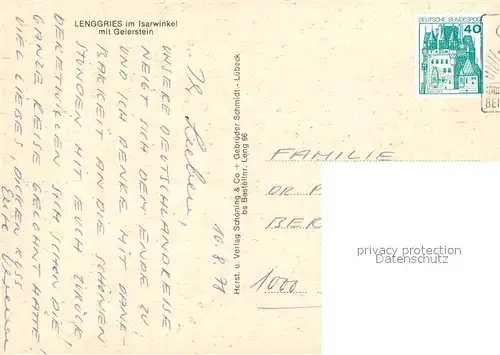 LENGGRIES im Isarwinkel
mit Geierstein
Ihr Lieben!
UNSERE DEUTSCHLANDREISE
NEIGT SICH DEM ENDE ZU
UND ICH DENKE MIT DANK-
BARKEIT AN DIE SCHÖNEN
STUNDEN MIT EUCH ZURÜCK
DERETWILLEN SICH SCHON DIE
GANZE REISE GELOHNT HATTE!
VIEL LIEBES, DICKEN KUSS
Eure
10.8.
Horst. u. Verlag Schöning & Co + Gebrüder Schmidt - Lübeck
bs Bestellnr. Leng 66
DEUTSCHE BUNDESPOST
40
FAMILIE
DR.
BER
1000
privacy protection
Datenschutz